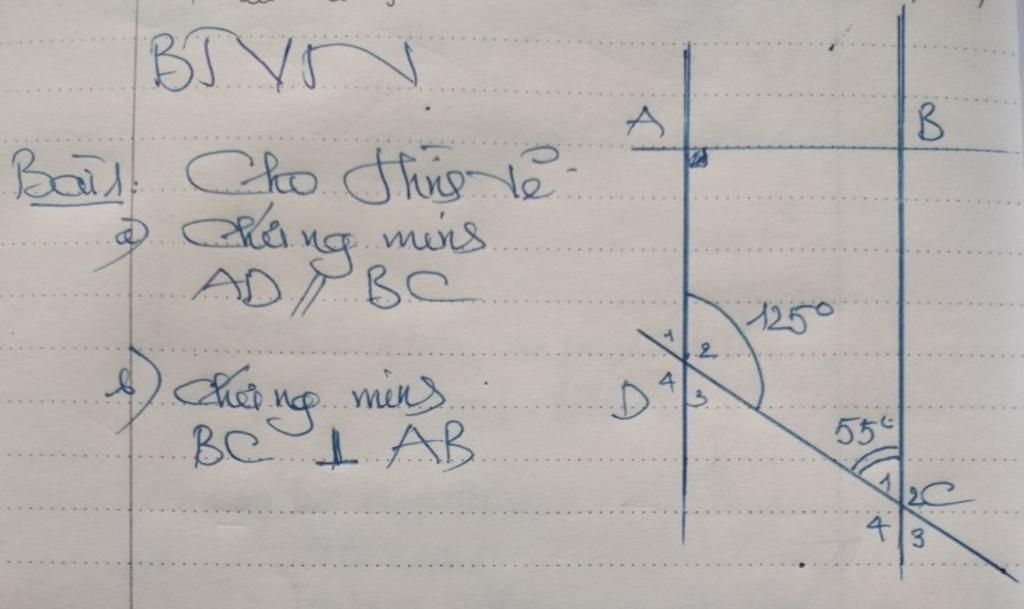 BTVN
Bài 1: Cho hình vẽ
a) Chứng minh
AD // BC
b) Chứng minh
BC ⊥ AB
A
B
125°
1 2
4 3
D
55°
1 2 C
4 3